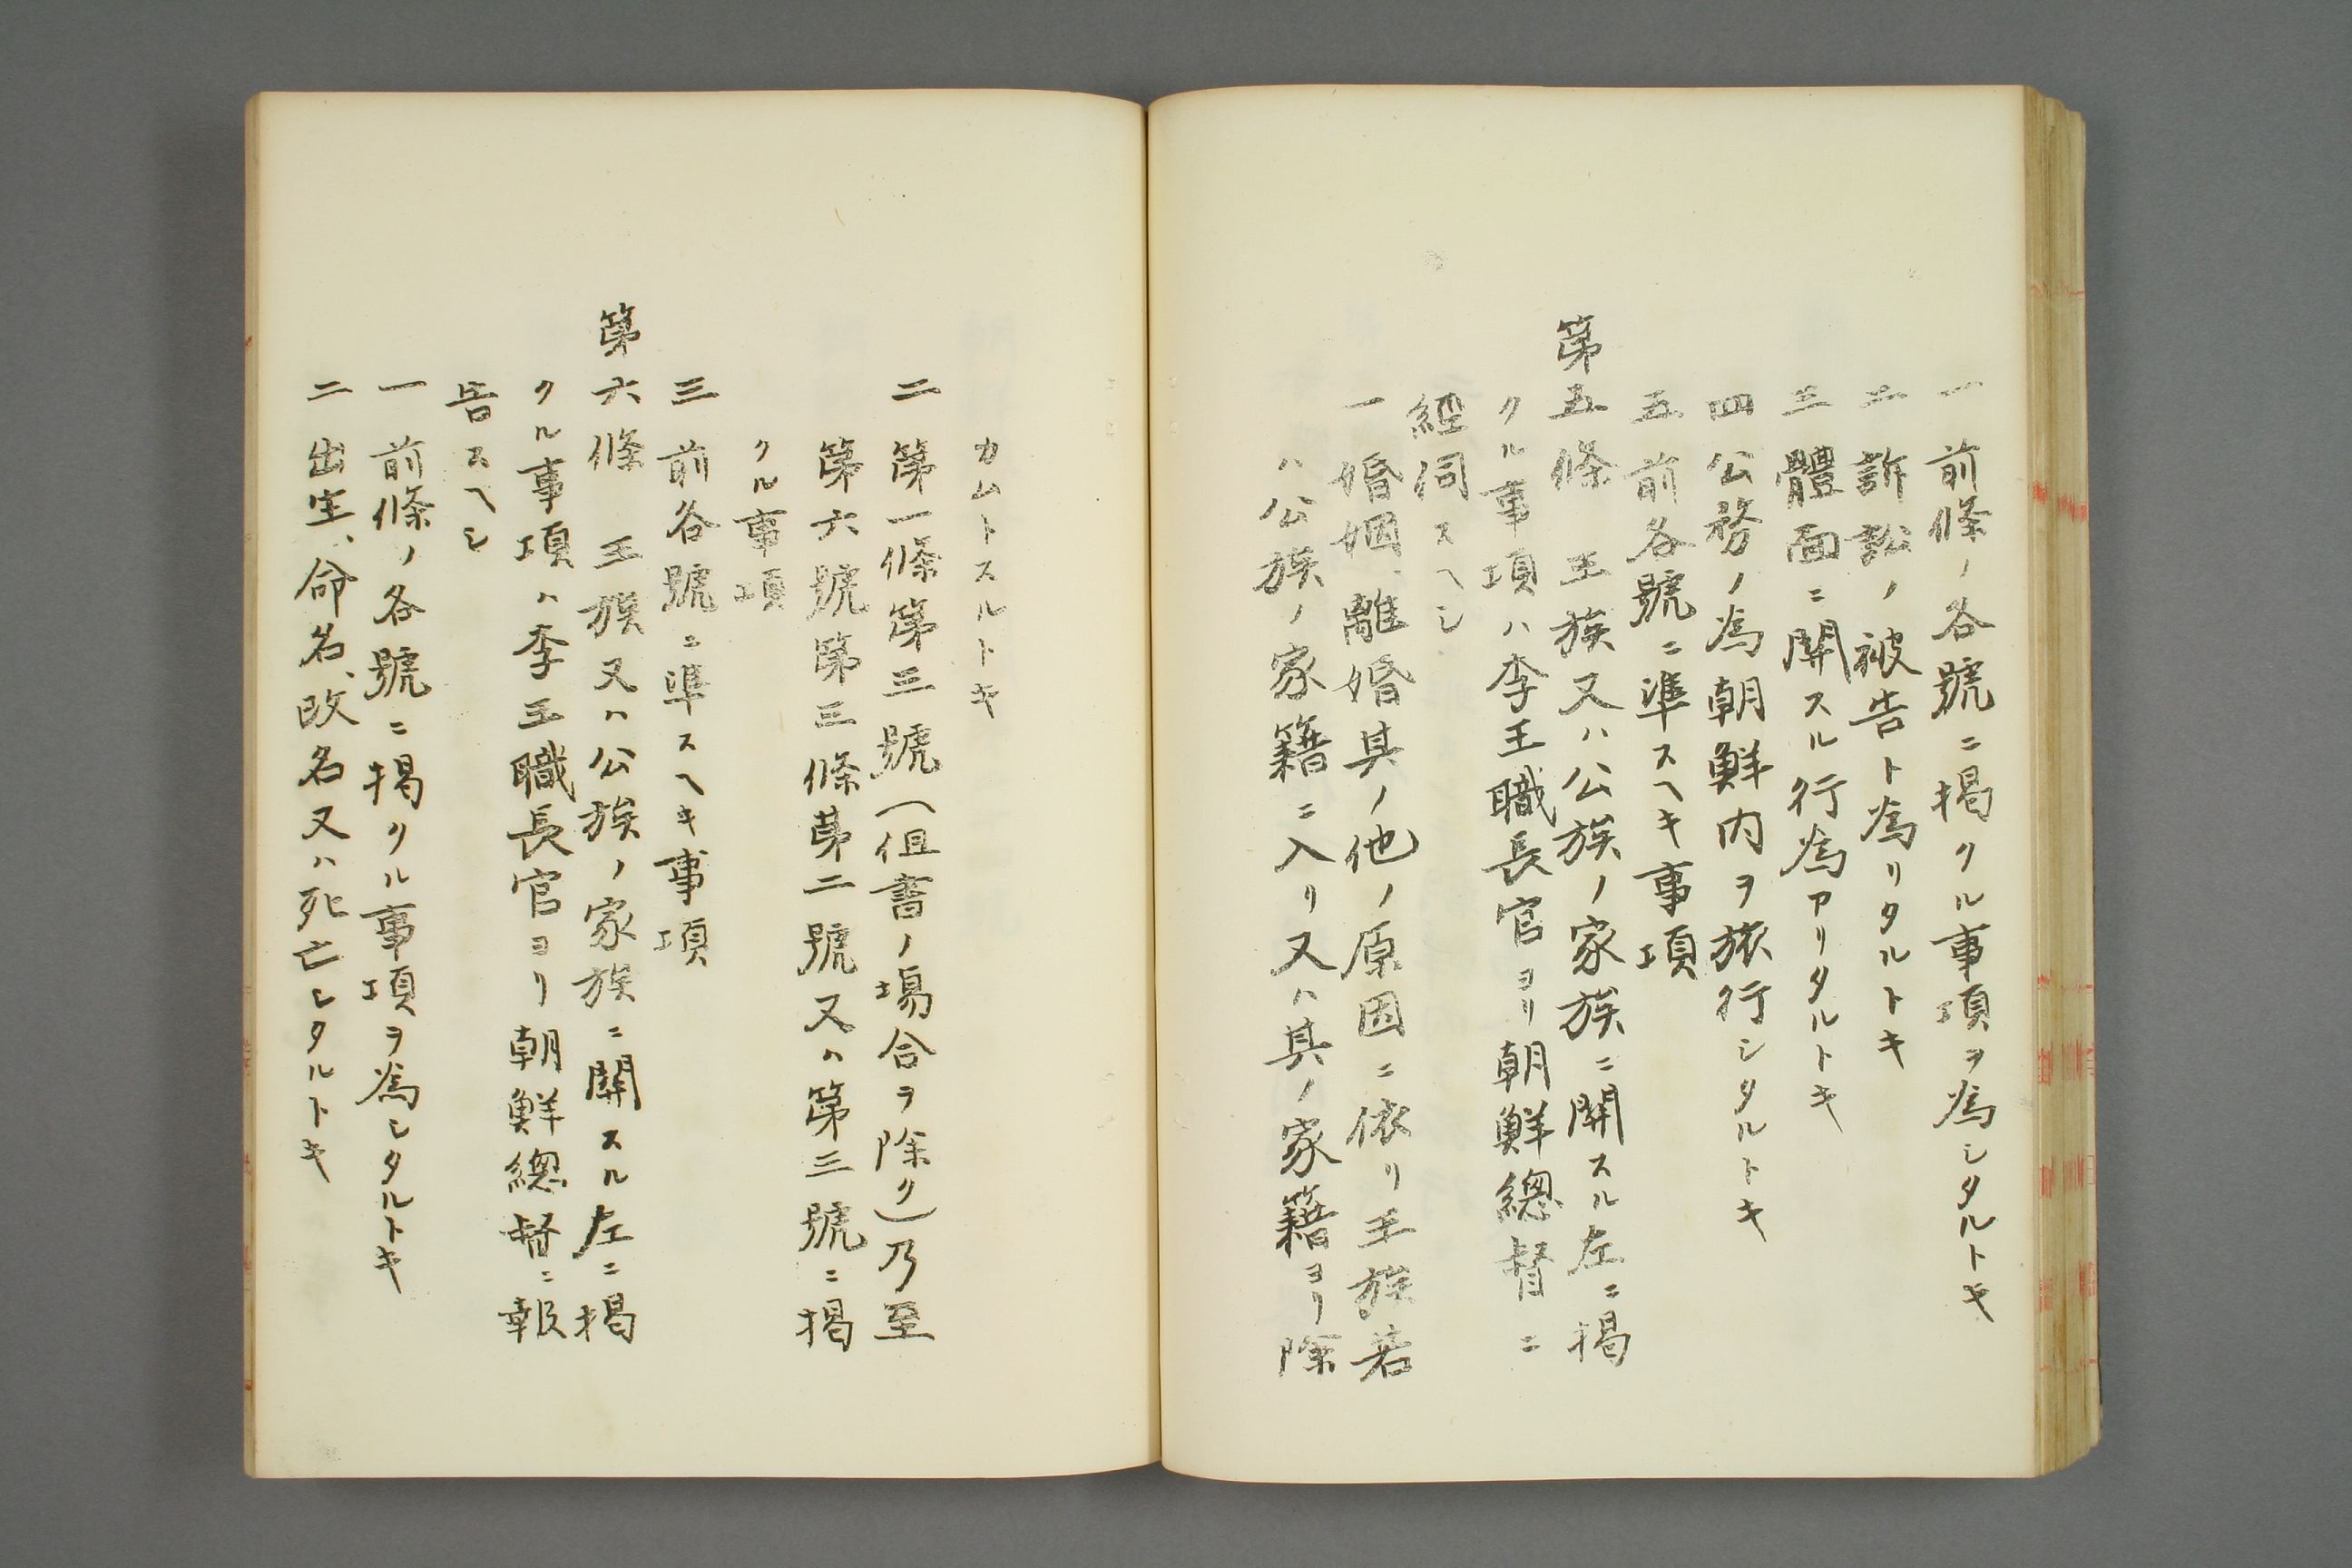 一 前條ノ各號ニ掲クル事項ヲ爲シタルトキ
二 訴訟ノ被告ト爲リタルトキ
三 體面ニ關スル行爲アリタルトキ
四 公務ノ爲朝鮮内ヲ旅行シタルトキ
五 前各號ニ準スヘキ事項
第五條 王族又ハ公族ノ家族ニ關スル左ニ掲
クル事項ハ李王職長官ヨリ朝鮮總督ニ
經伺スヘシ
一 婚姻、離婚其ノ他ノ原因ニ依リ王族若
ハ公族ノ家籍ニ入リ又ハ其ノ家籍ヨリ除
カムトスルトキ
二 第一條第三號(但書ノ場合ヲ除ク)乃至
第六號第三條第二號又ハ第三號ニ掲
クル事項
三 前各號ニ準スヘキ事項
第六條 王族又ハ公族ノ家族ニ關スル左ニ掲
クル事項ハ李王職長官ヨリ朝鮮總督ニ報
告スヘシ
一 前條ノ各號ニ掲クル事項ヲ爲シタルトキ
二 出生、命名、改名又ハ死亡シタルトキ